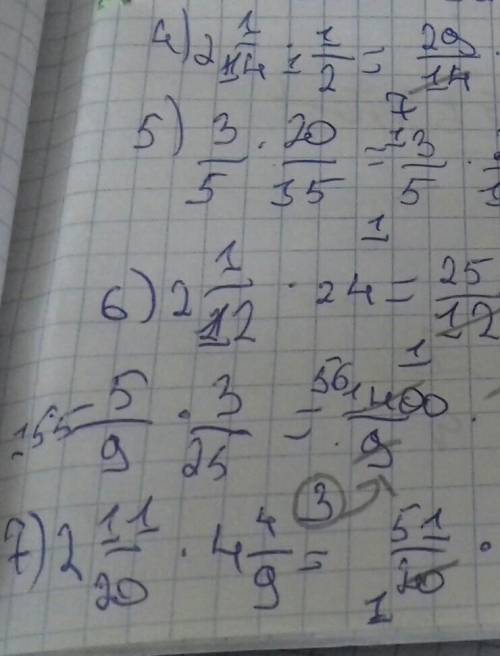 4) 2 1/14 : 1/2 = 29/14 ·
7
5) 3/5 · 20/35 = 3/5 ·
1
6) 2 1/12 · 24 = 25/12
1
155 5/9 · 3/25 = 56 1400/9 ·
3
7) 2 11/20 · 4 4/9 = 51/20 ·
1